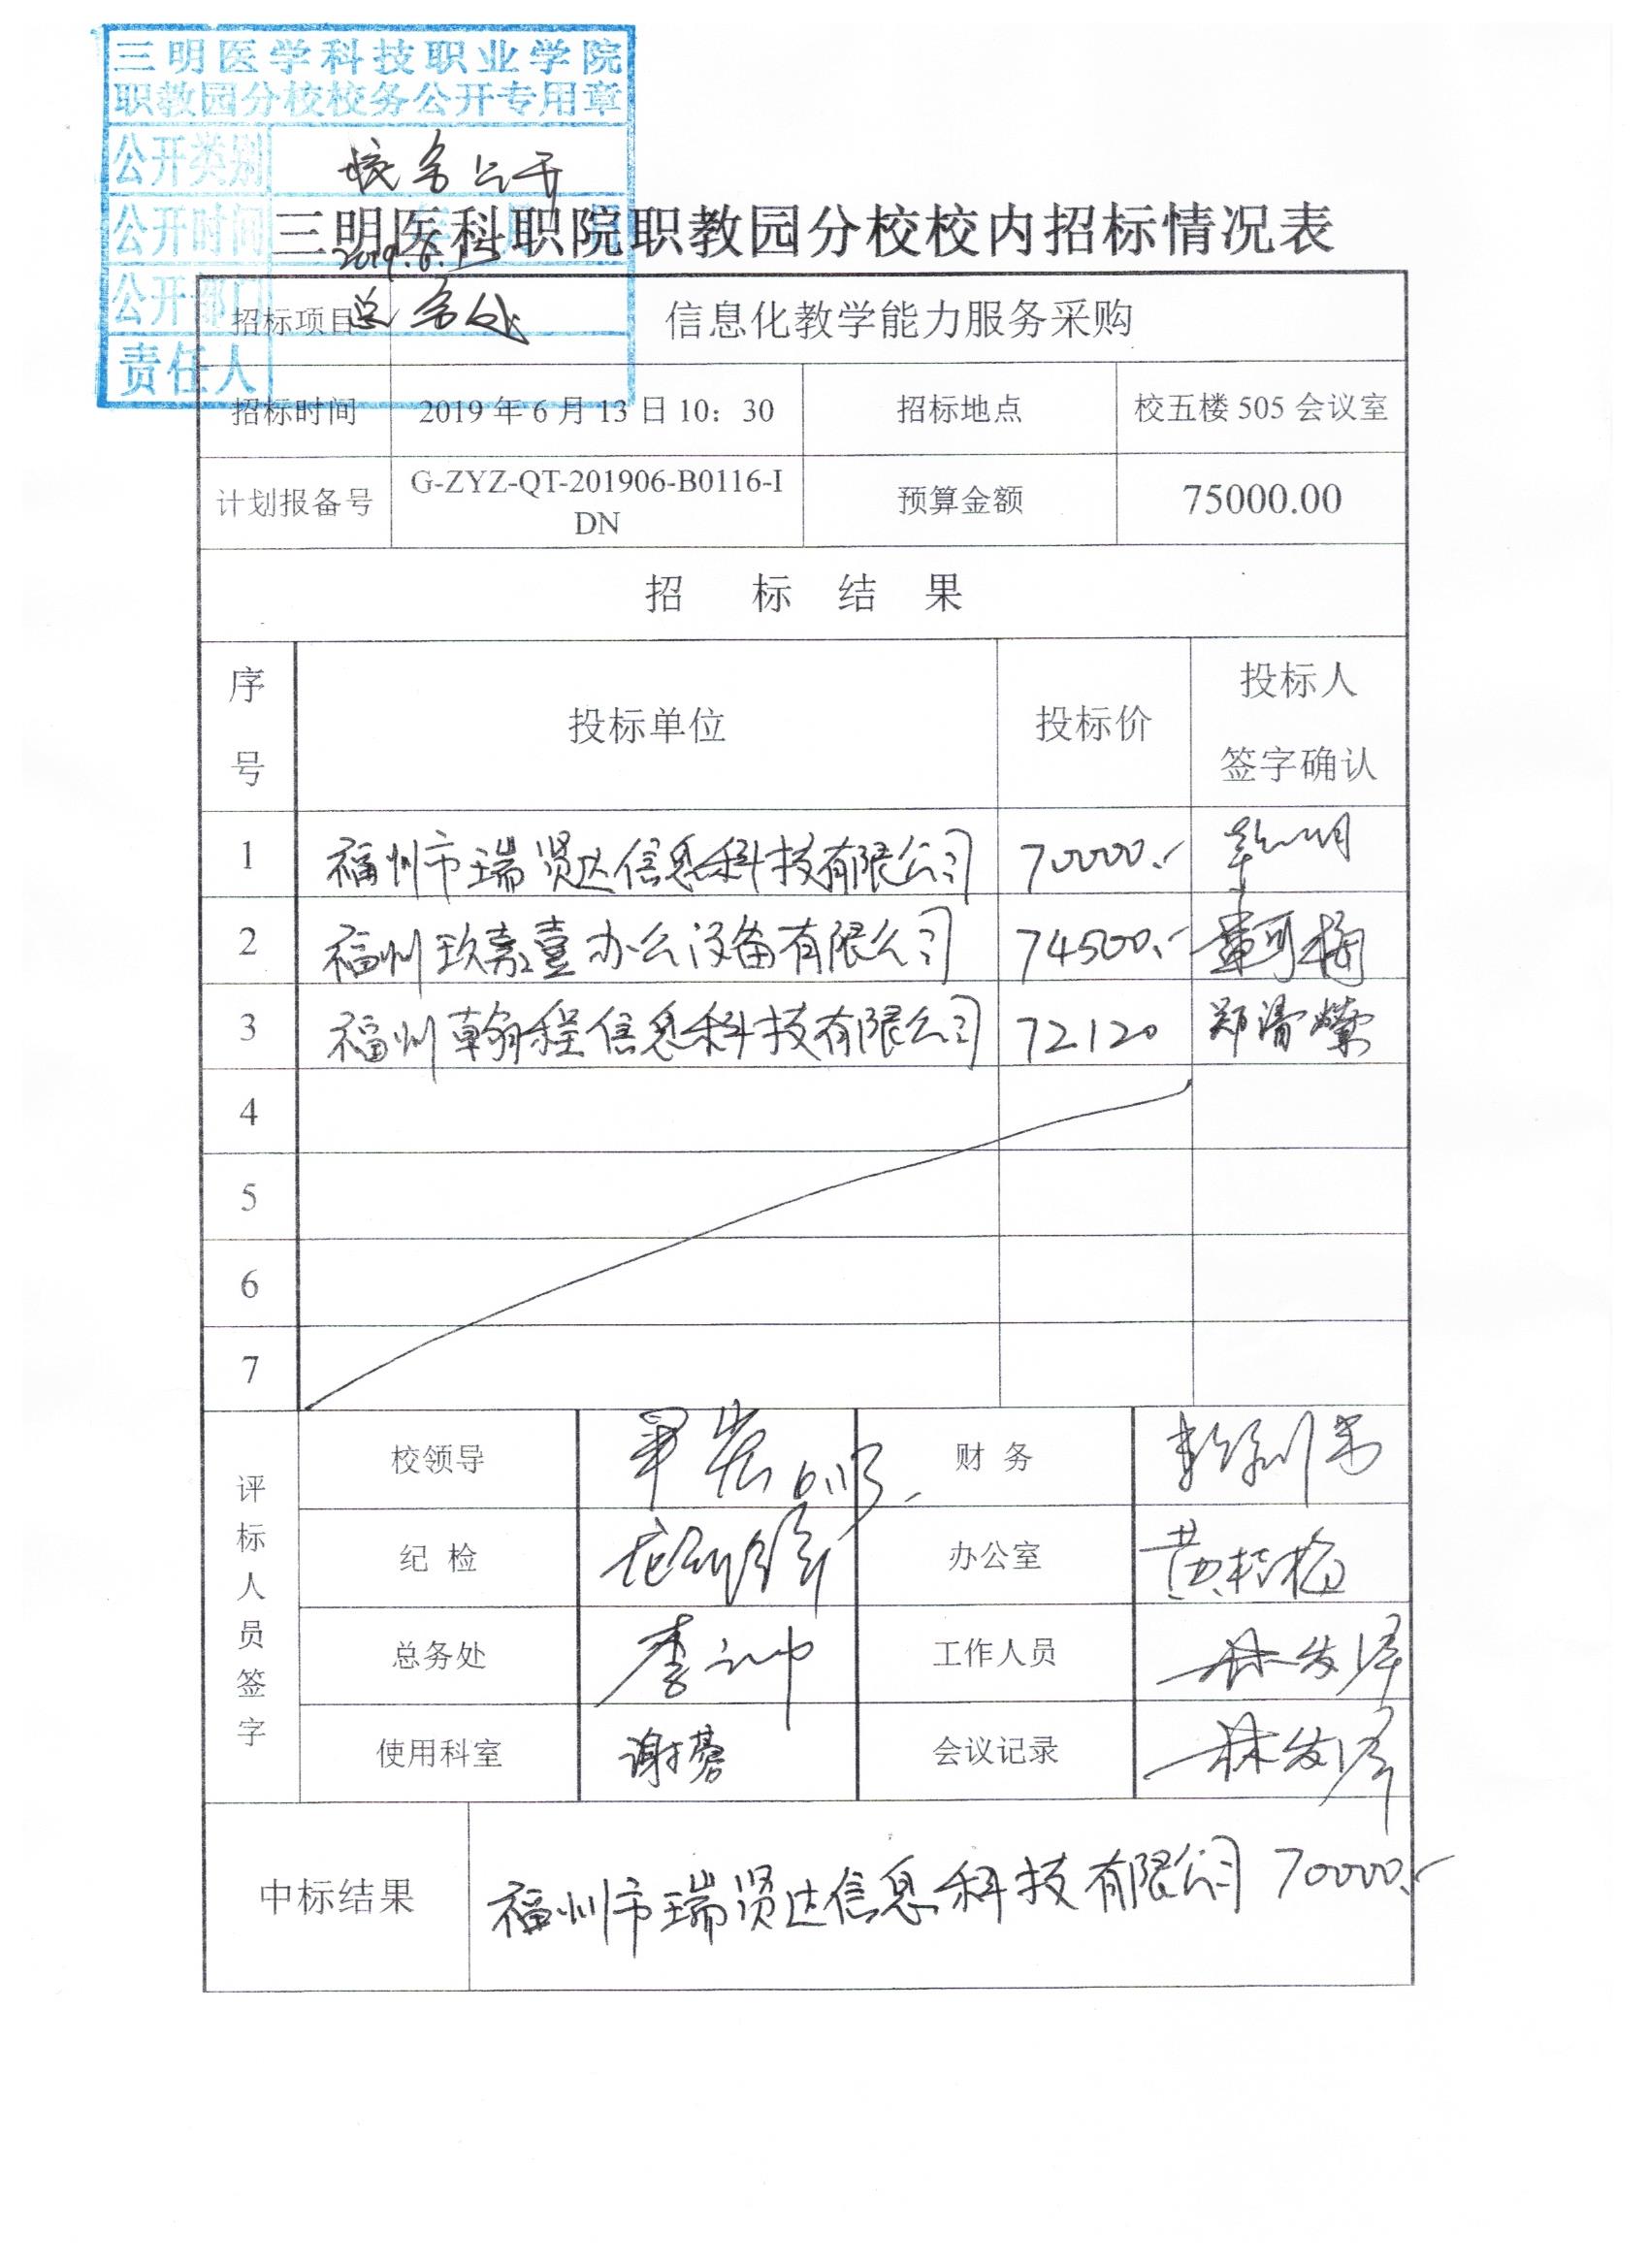 三明医学科技职业学院
职教园分校校务公开专用章
公开类别 校务公开
公开时间
三明医科职院职教园分校校内招标情况表
公开部门 总务处
招标项目 信息化教学能力服务采购
责任人
招标时间 2019年6月13日10：30 招标地点 校五楼505会议室
计划报备号 G-ZYZ-QT-201906-B0116-I
DN 预算金额 75000.00
招 标 结 果
序号 投标单位 投标价 投标人
签字确认
1 福州市瑞贤达信息科技有限公司 70000.-
2 福州玖嘉喜办公设备有限公司 74500.- 章可梅
3 福州翰程信息科技有限公司 72120
4
5
6
7
评标人员签字
校领导 6.13. 财务
纪检 办公室 黄桂梅
总务处 工作人员 林发泽
使用科室 会议记录 林发泽
中标结果 福州市瑞贤达信息科技有限公司 70000.-